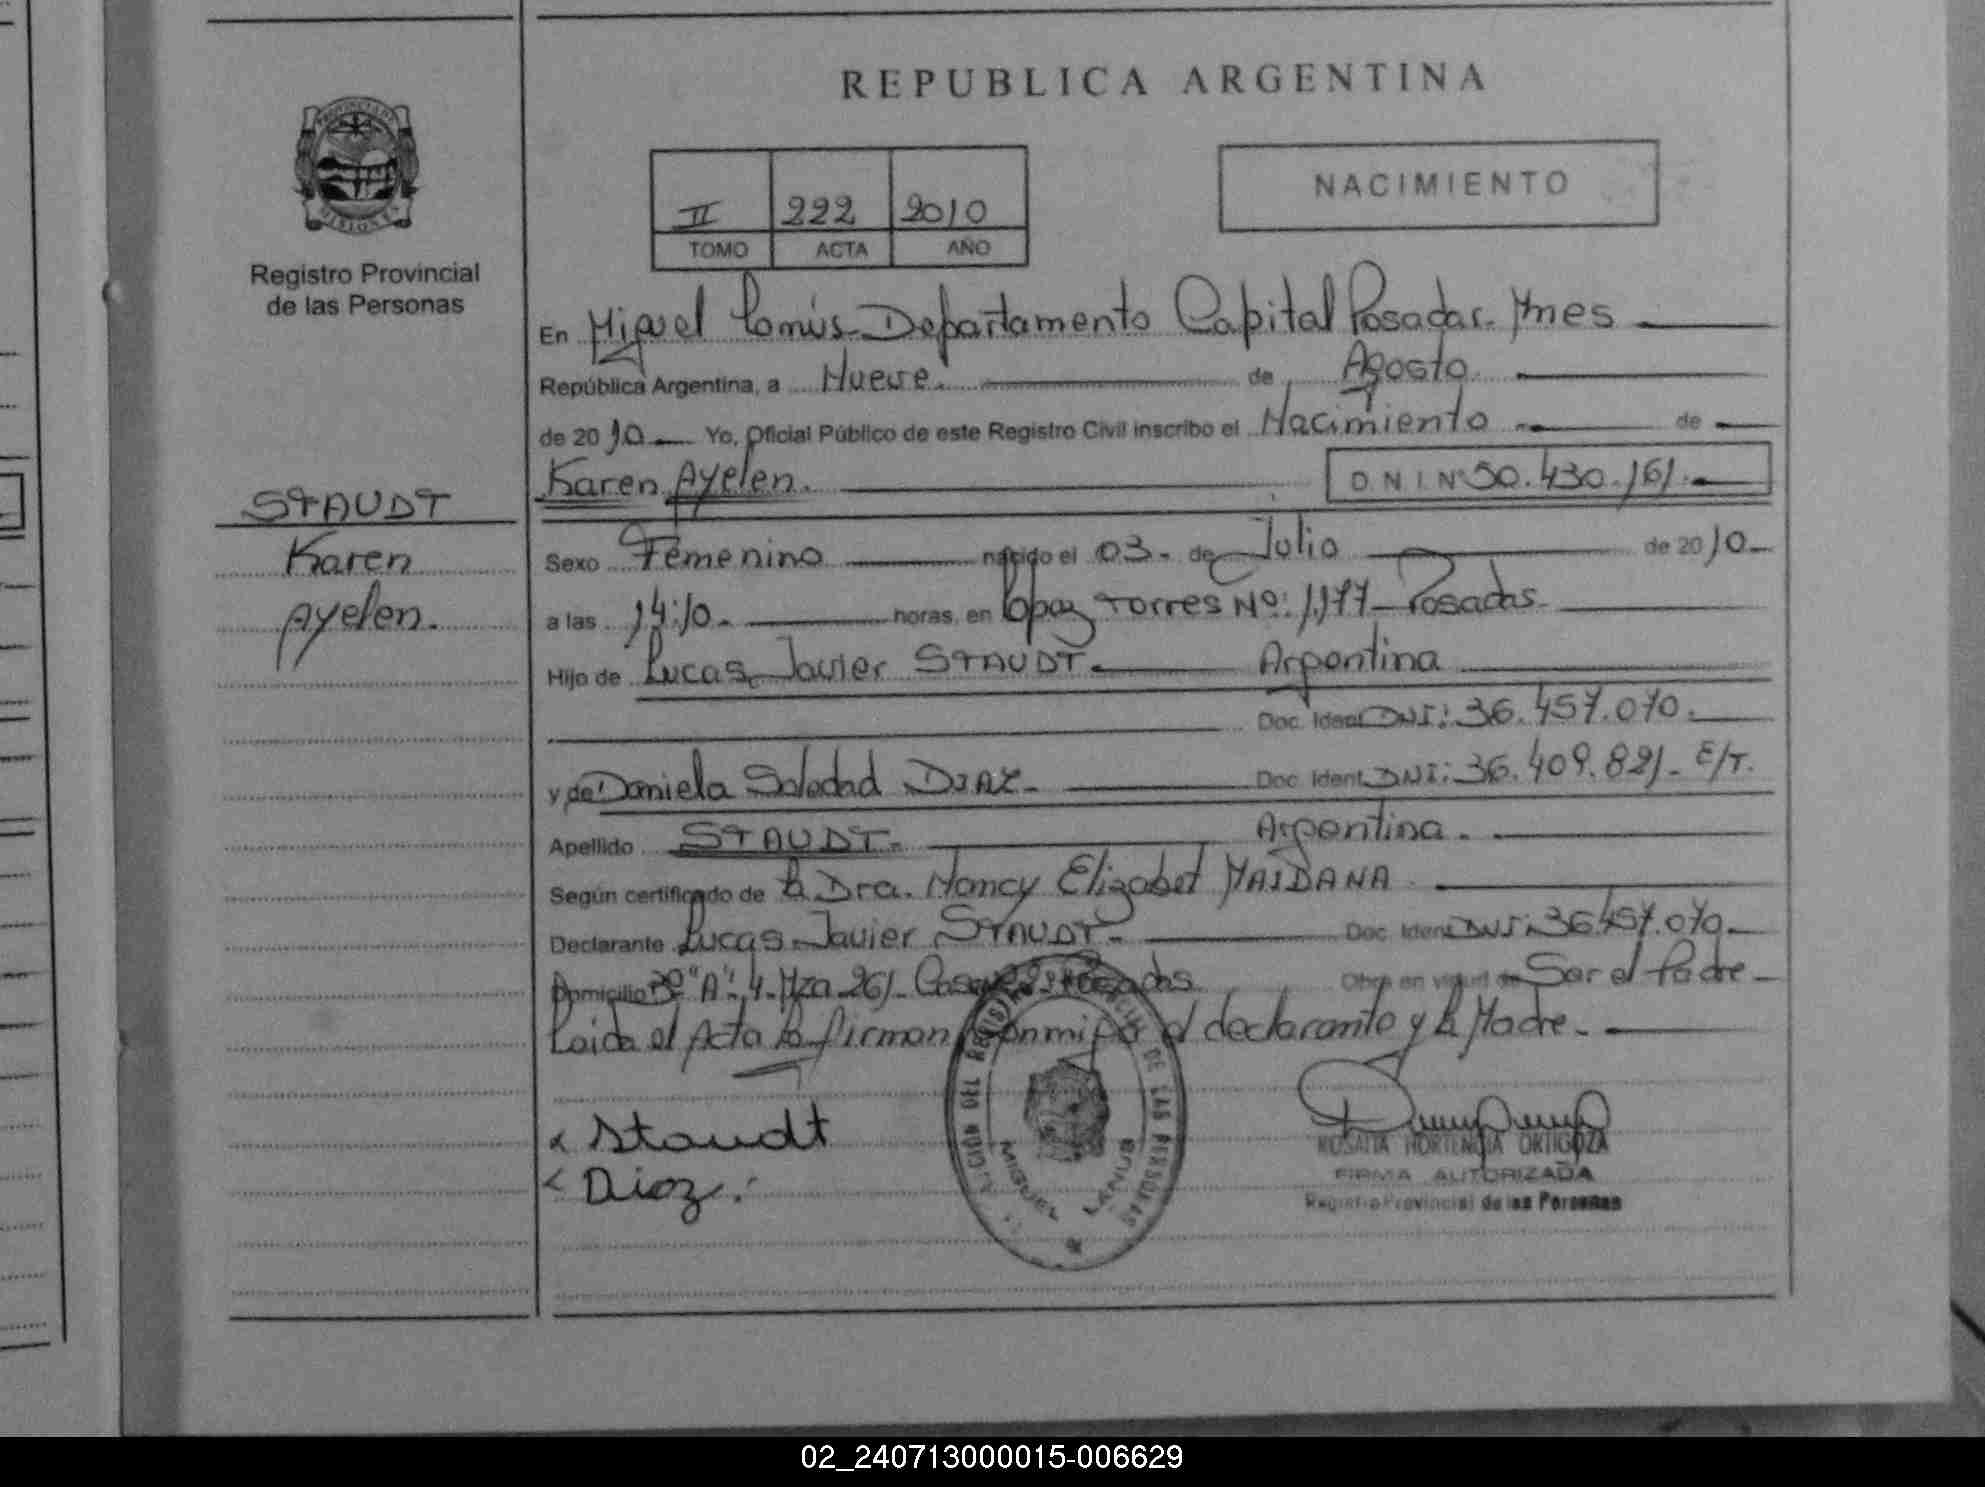 REPUBLICA ARGENTINA
PROVINCIA DE
MISIONES
Registro Provincial
de las Personas
II 222 2010
TOMO ACTA AÑO
NACIMIENTO
En Miguel Lanús - Departamento Capital Posadas - Mnes
República Argentina, a Nueve. de Agosto
de 2010 Yo, Oficial Público de este Registro Civil inscribo el Nacimiento de
Karen Ayelen. D.N.I. Nº 50.430.161.-
STAUDT
Karen
Ayelen.
Sexo Femenino nacido el 03 - de Julio de 2010-
a las 14:10- horas, en López Torres Nº: 1.177 - Posadas-
Hijo de Lucas Javier STAUDT- Argentina
Doc. Ident. DNI: 36.457.070.
y de Daniela Soledad DIAZ- Doc. Ident. DNI: 36.409.821- E/T.
Apellido STAUDT- Argentina.
Según certificado de la Dra. Nancy Elizabet MAIDANA
Declarante Lucas Javier STAUDT- Doc. Ident. DNI: 36.457.070-
Domicilio "A"- 4- Mza 261- Casa Posadas Obra en virtud de Ser el Padre-
Leída el Acta la firman conmigo el declarante y la Madre-
Staudt
Diaz.
DEL REGISTRO PROVINCIAL DE LAS PERSONAS
MIGUEL LANUS
ROSALIA HORTENCIA ORTIGOZA
FIRMA AUTORIZADA
Registro Provincial de las Personas
02_240713000015-006629